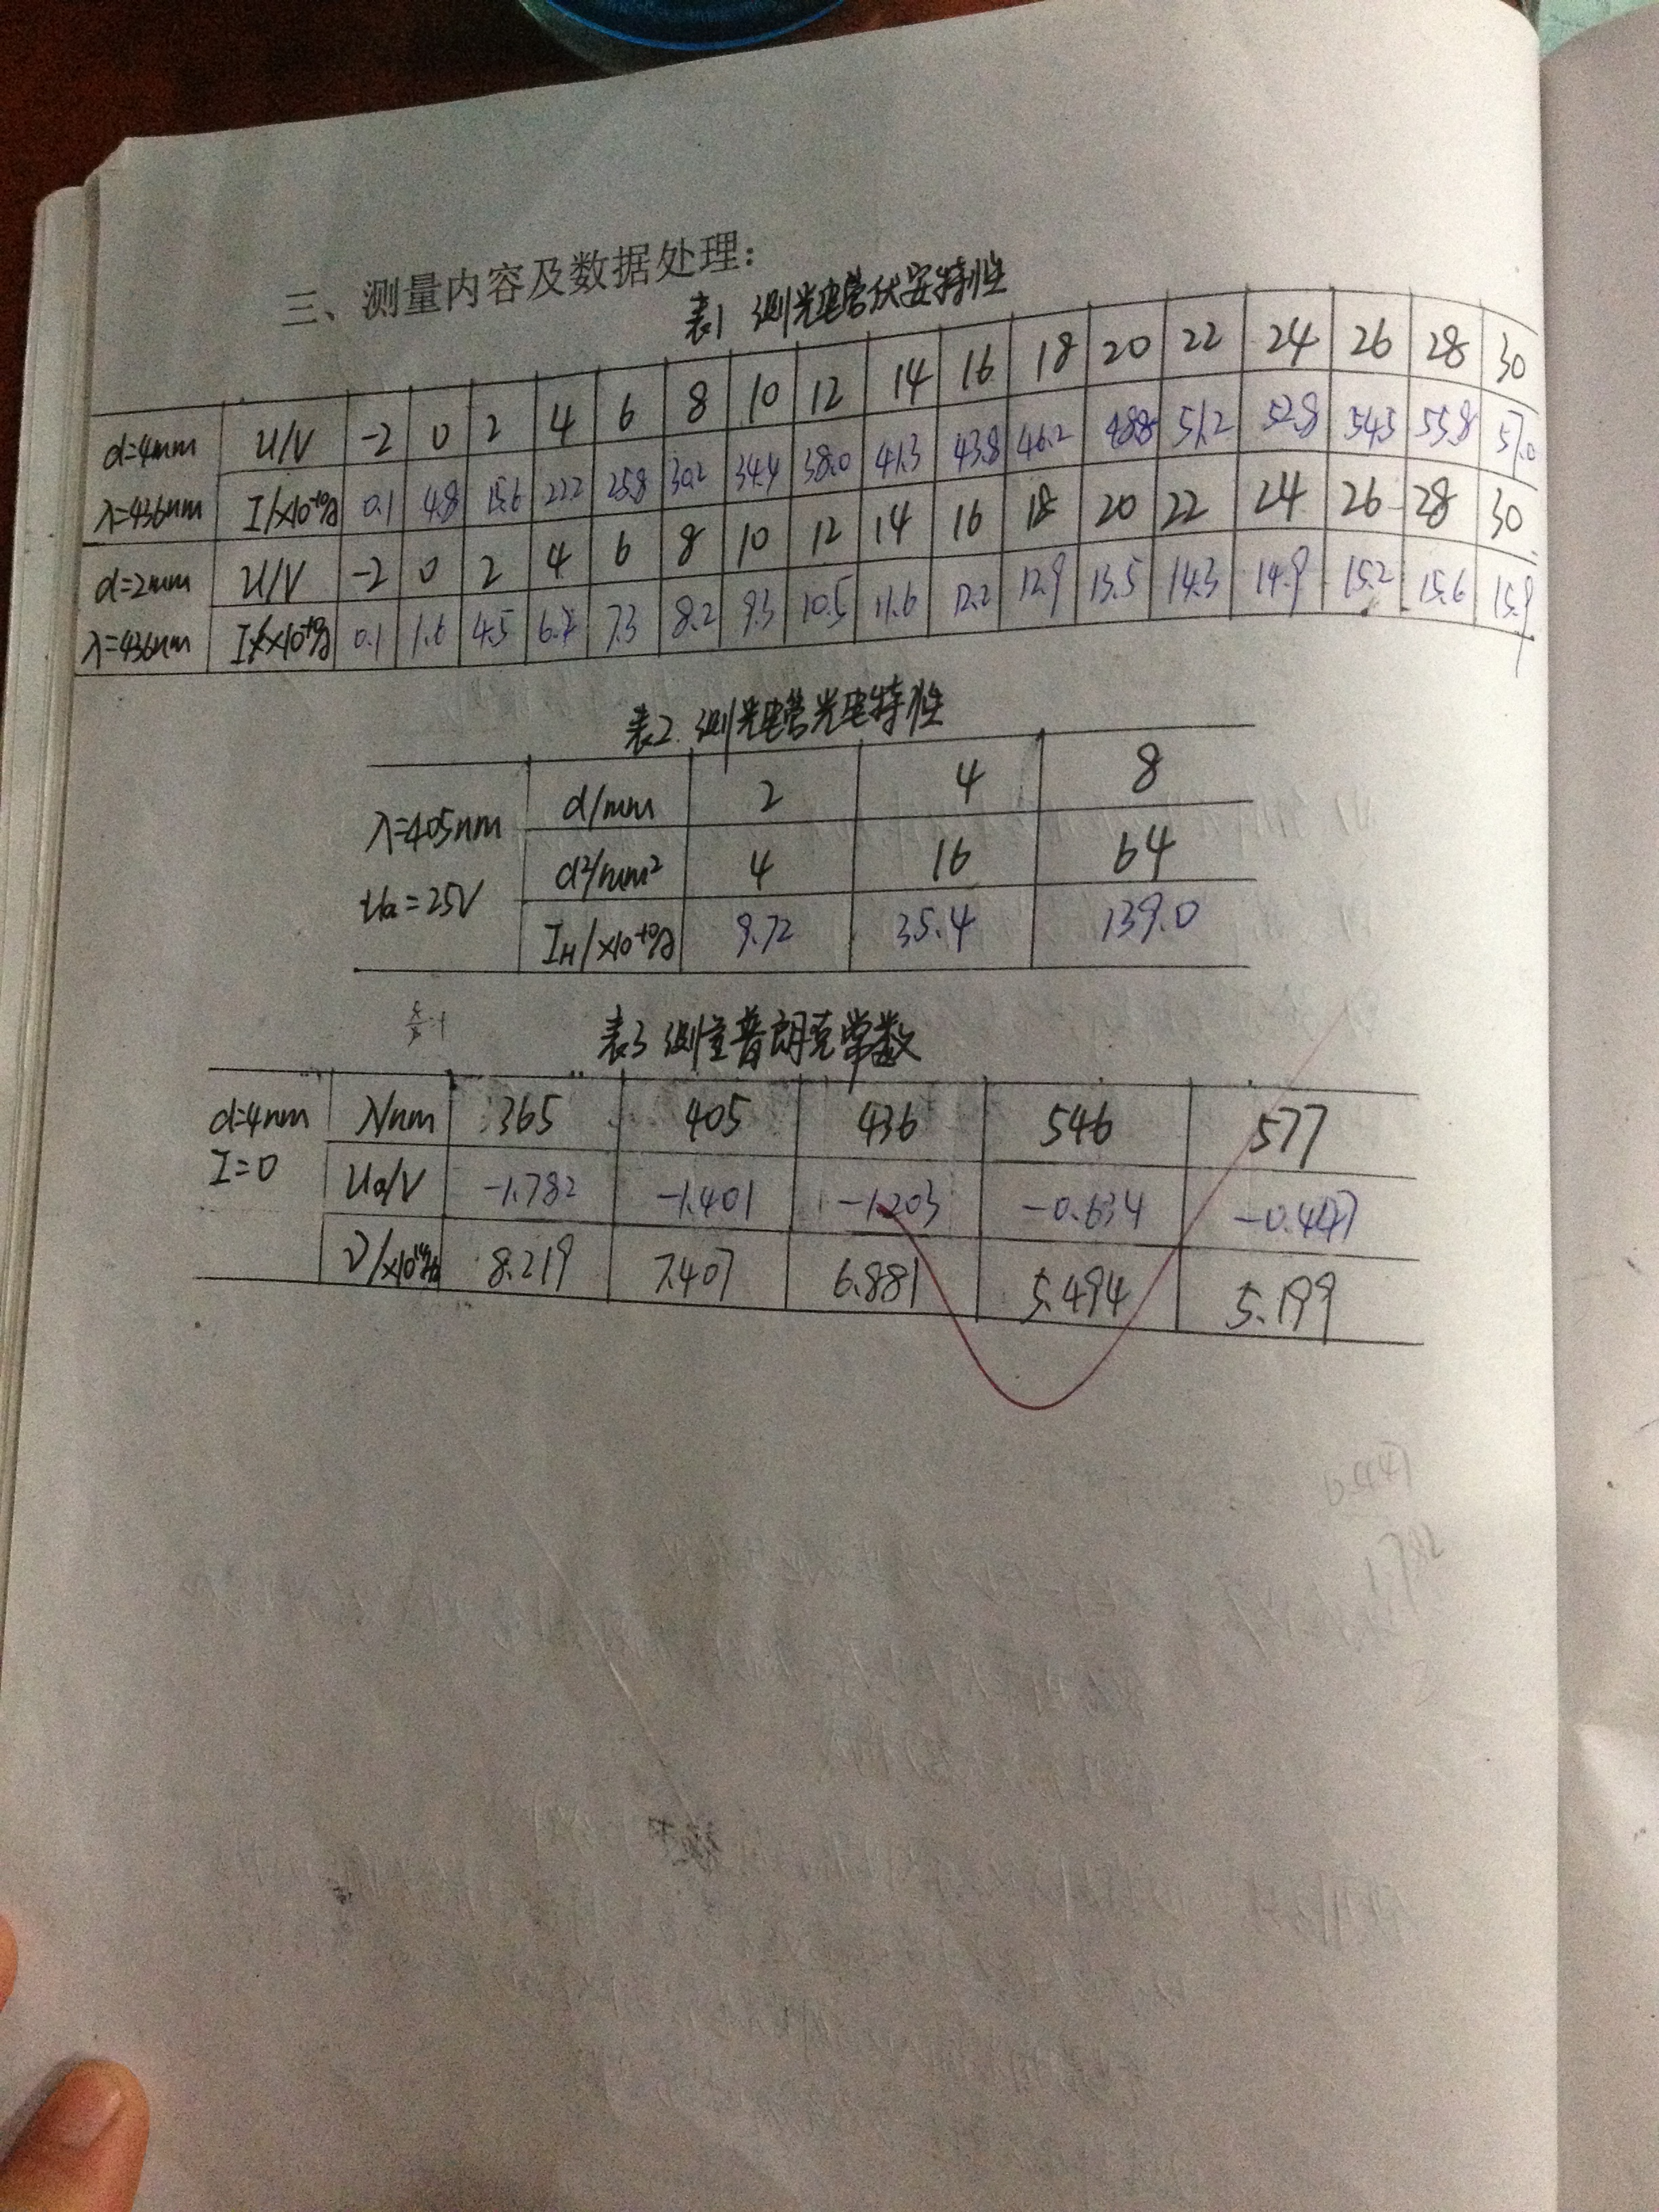 三、测量内容及数据处理:
表1 测光电管伏安特性
d=4mm U/V -2 0 2 4 6 8 10 12 14 16 18 20 22 24 26 28 30
λ=436nm I/×10⁻¹⁰A 0.1 4.8 15.6 22.2 25.8 30.2 34.4 38.0 41.3 43.8 46.2 48.8 51.2 52.8 54.5 55.8 57.0
d=2mm U/V -2 0 2 4 6 8 10 12 14 16 18 20 22 24 26 28 30
λ=436nm I/×10⁻¹⁰A 0.1 1.6 4.5 6.7 7.3 8.2 9.3 10.5 11.6 12.2 12.9 13.5 14.3 14.9 15.2 15.6 15.9
表2 测光电管光电特性
λ=405nm d/mm 2 4 8
d²/mm² 4 16 64
Ua=25V IH/×10⁻¹⁰A 9.72 35.4 139.0
表3 测量普朗克常数
d=4nm λ/nm 365 405 436 546 577
I=0 Ua/V -1.782 -1.401 -1.203 -0.634 -0.447
ν/×10¹⁴Hz 8.219 7.407 6.881 5.494 5.199